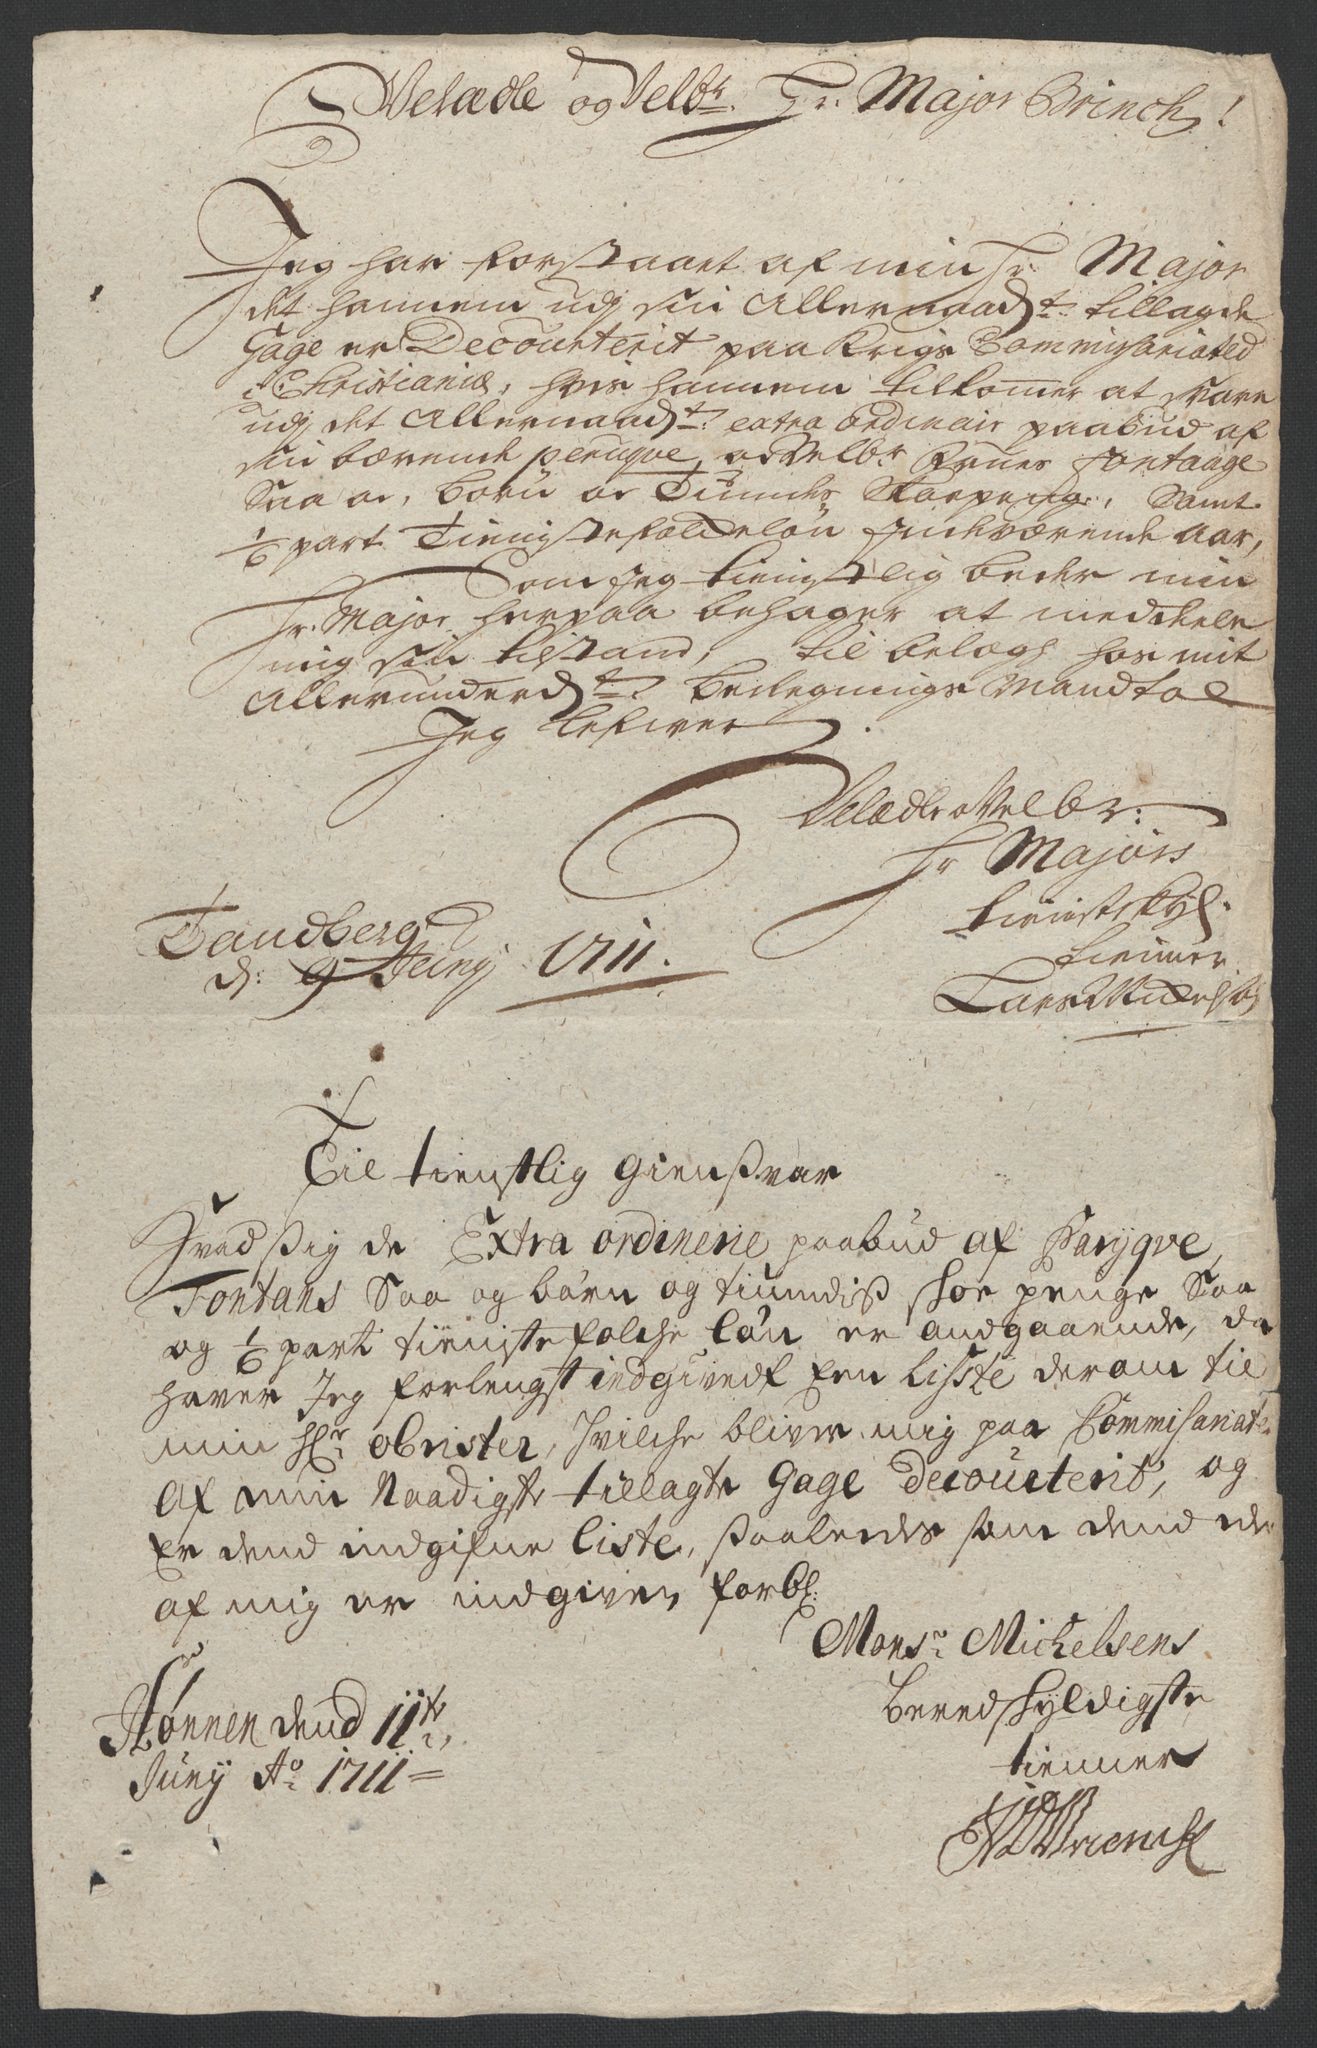 Velædle og Velbr. Hr. Major Brinch!
Jeg har forstaaet af min Hr. Major
det hannem udj sin Allernaadt. tillagde
Gage er Decourterit paa Krigs Commissariated
i Christiania, hvis hannem tilkomer at svare
udj det Allernaadt. extra ordinair paabud af
sin bærende peruqve, og Velbr. Frues Fontaage
Saa og, Børn og Tiundes Skoepeng., Samt
1/6 part Tienistefolckeløn indeværende Aar,
Som Jeg tienistlig beder min
Hr. Major herpaa behager at meddeele
mig sin tilstand, til belægh hos mit
Allerunderdt. Beilegnings Mandtal
Jeg lefwer
Velædle og Velbr:
Hr Majors
tienistskyl.
tienner
Lars Michelss
Sandberg
d: 9 Junij 1711.
Til tienstlig gienßvar
Hvad ßig de Extra ordinerie paabud af Paryqve,
Fontans Saa og børn og tiundiß skoe penge Saa
og 1/6 part tienistefolche løn er andgaaende, da
haver Jeg forlengst indgivedt Een liste derom til
min Hr. obrister, hvilche bliver mig paa Commisariate
af min Naadigste tillagte Gage Decourterit, og
Er dend indgifne liste, ßaaledes som dend der
af mig er indgiven forbl:
Monsr. Michelsens
beredskyldigste
tienner
Brinch
Hønnen dend 11te
Junij Ao 1711